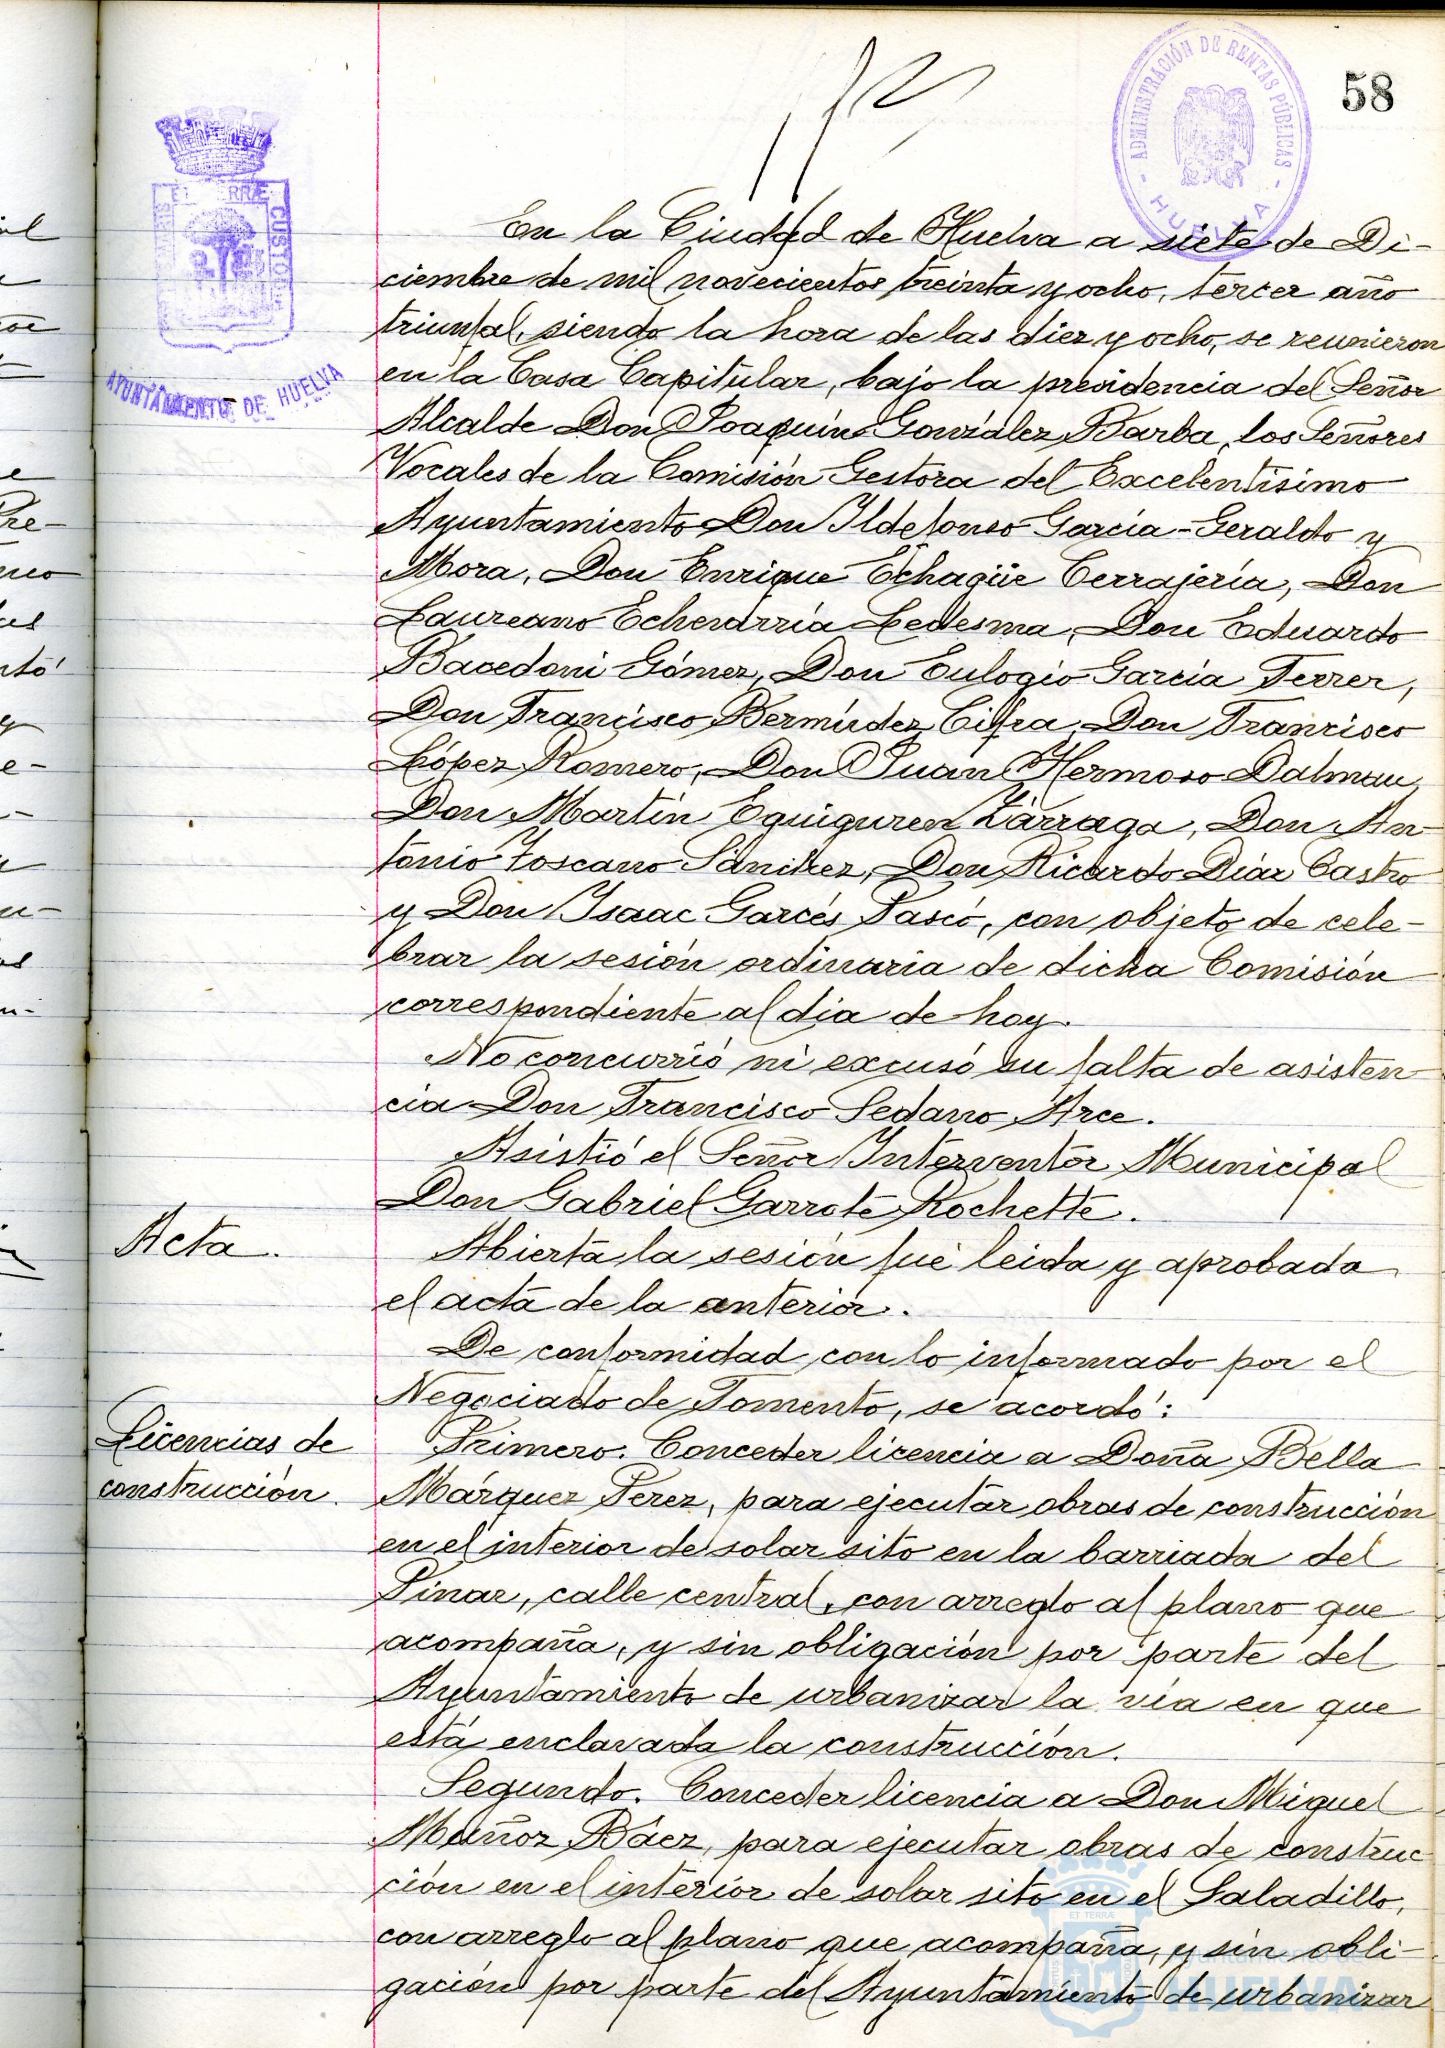 58
ADMINISTRACIÓN DE RENTAS PÚBLICAS
HUELVA
ET TERRÆ
CUSTODIA
AYUNTAMIENTO DE HUELVA
En la Ciudad de Huelva a siete de Di-
ciembre de mil novecientos treinta y ocho, tercer año
triunfal, siendo la hora de las diez y ocho, se reunieron
en la Casa Capitular, bajo la presidencia del Señor
Alcalde Don Joaquín González Barba, los Señores
Vocales de la Comisión Gestora del Excelentísimo
Ayuntamiento Don Ildefonso García-Geraldo y
Mora, Don Enrique Echagüe Cerrajería, Don
Laureano Echevarría Ledesma, Don Eduardo
Bacedoni Gómez, Don Eulogio García Ferrer,
Don Francisco Bermúdez Cifra, Don Francisco
López Romero, Don Juan Hermoso Dalmau,
Don Martín Eguiguren Zárraga, Don An-
tonio Toscano Sánchez, Don Ricardo Díaz Castro
y Don Isaac Garcés Pascó, con objeto de cele-
brar la sesión ordinaria de dicha Comisión
correspondiente al dia de hoy.
No concurrió ni excusó su falta de asisten-
cia Don Francisco Sedano Arce.
Asistió el Señor Interventor Municipal
Don Gabriel Garrote Rochette.
Acta.
Abierta la sesión fué leida y aprobada
el acta de la anterior.
De conformidad con lo informado por el
Negociado de Fomento, se acordó:
Licencias de
construcción.
Primero. Conceder licencia a Doña Bella
Márquez Perez, para ejecutar obras de construcción
en el interior de solar sito en la barriada del
Pinar, calle central, con arreglo al plano que
acompaña, y sin obligación por parte del
Ayuntamiento de urbanizar la vía en que
está enclavada la construcción.
Segundo. Conceder licencia a Don Miguel
Muñoz Báez, para ejecutar obras de construc-
ción en el interior de solar sito en el Saladillo,
con arreglo al plano que acompaña, y sin obli-
gación por parte del Ayuntamiento de urbanizar
ET TERRÆ
Ayuntamiento de
HUELVA